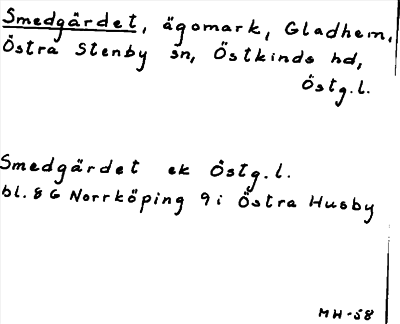 Smedgärdet, ägomark, Gladhem,
Östra Stenby sn, Östkinds hd,
Östg.l.
Smedgärdet ek Östg.l.
bl. 8G Norrköping 9i Östra Husby
MH-58